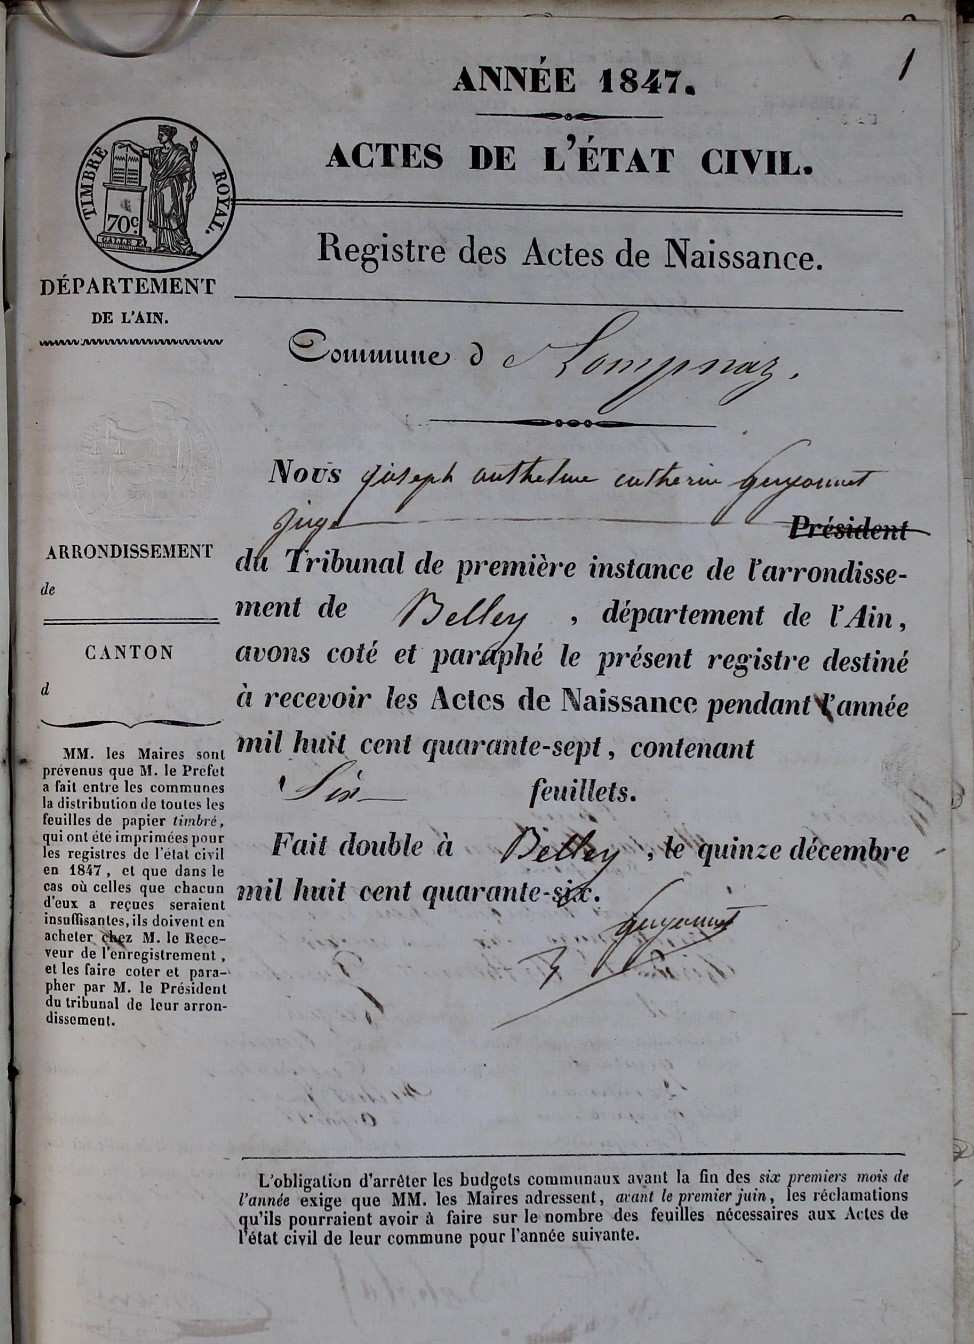 1
ANNÉE 1847.
ACTES DE L'ÉTAT CIVIL.
TIMBRE ROYAL.
70c
Registre des Actes de Naissance.
DÉPARTEMENT
DE L'AIN.
Commune d e Lompnaz.
Nous joseph anthelme catherin Guyonnet
juge Président
du Tribunal de première instance de l'arrondisse-
ment de Belley, département de l'Ain,
avons coté et paraphé le présent registre destiné
à recevoir les Actes de Naissance pendant l'année
mil huit cent quarante-sept, contenant
Six feuillets.
Fait double à Belley, le quinze décembre
mil huit cent quarante-six.
Guyonnet
ARRONDISSEMENT
de
CANTON
d
MM. les Maires sont
prévenus que M. le Préfet
a fait entre les communes
la distribution de toutes les
feuilles de papier timbré,
qui ont été imprimées pour
les registres de l'état civil
en 1847, et que dans le
cas où celles que chacun
d'eux a reçues seraient
insuffisantes, ils doivent en
acheter chez M. le Rece-
veur de l'enregistrement,
et les faire coter et para-
pher par M. le Président
du tribunal de leur arron-
dissement.
L'obligation d'arrêter les budgets communaux avant la fin des six premiers mois de
l'année exige que MM. les Maires adressent, avant le premier juin, les réclamations
qu'ils pourraient avoir à faire sur le nombre des feuilles nécessaires aux Actes de
l'état civil de leur commune pour l'année suivante.